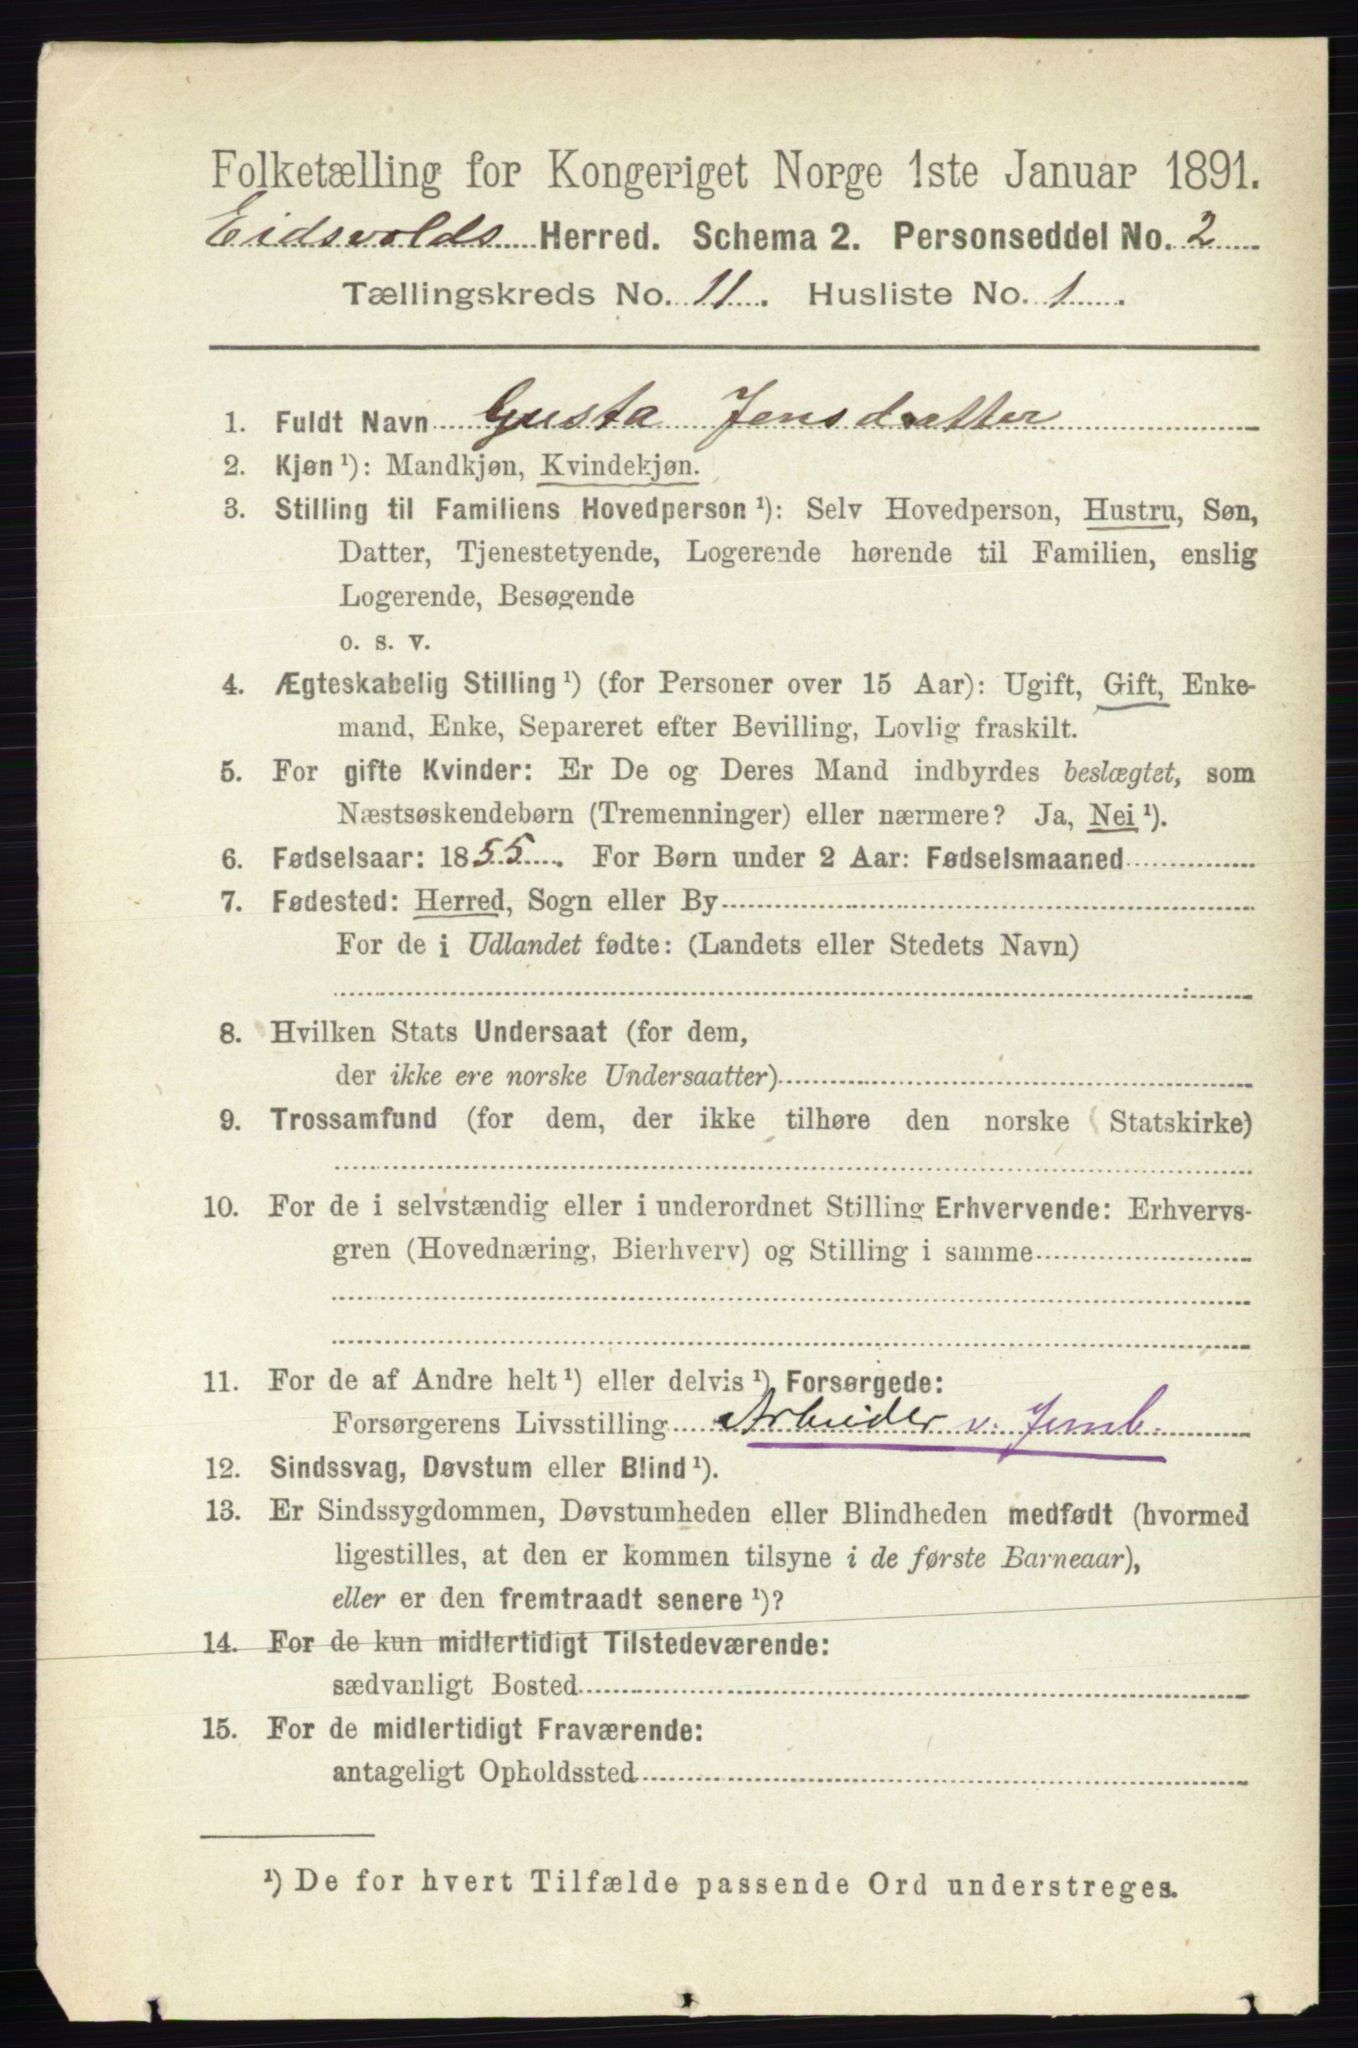 Folketælling for Kongeriget Norge 1ste Januar 1891.
Eidsvolds Herred. Schema 2. Personseddel No. 2
Tællingskreds No. 11. Husliste No. 1.
1. Fuldt Navn Gusta Jensdatter
2. Kjøn ¹): Mandkjøn, Kvindekjøn.
3. Stilling til Familiens Hovedperson ¹): Selv Hovedperson, Hustru, Søn,
Datter, Tjenestetyende, Logerende hørende til Familien, enslig
Logerende, Besøgende
o. s. v.
4. Ægteskabelig Stilling ¹) (for Personer over 15 Aar): Ugift, Gift, Enke-
mand, Enke, Separeret efter Bevilling, Lovlig fraskilt.
5. For gifte Kvinder: Er De og Deres Mand indbyrdes beslægtet, som
Næstsøskendebørn (Tremenninger) eller nærmere? Ja, Nei ¹).
6. Fødselsaar: 1855. For Børn under 2 Aar: Fødselsmaaned
7. Fødested: Herred, Sogn eller By
For de i Udlandet fødte: (Landets eller Stedets Navn)
8. Hvilken Stats Undersaat (for dem,
der ikke ere norske Undersaatter)
9. Trossamfund (for dem, der ikke tilhøre den norske Statskirke)
10. For de i selvstændig eller i underordnet Stilling Erhvervende: Erhvervs-
gren (Hovednæring, Bierhverv) og Stilling i samme
11. For de af Andre helt ¹) eller delvis ¹) Forsørgede:
Forsørgerens Livsstilling Arbeider v. Jernb.
12. Sindssvag, Døvstum eller Blind ¹).
13. Er Sindssygdommen, Døvstumheden eller Blindheden medfødt (hvormed
ligestilles, at den er kommen tilsyne i de første Barneaar),
eller er den fremtraadt senere ¹)?
14. For de kun midlertidigt Tilstedeværende:
sædvanligt Bosted
15. For de midlertidigt Fraværende:
antageligt Opholdssted
¹) De for hvert Tilfælde passende Ord understreges.